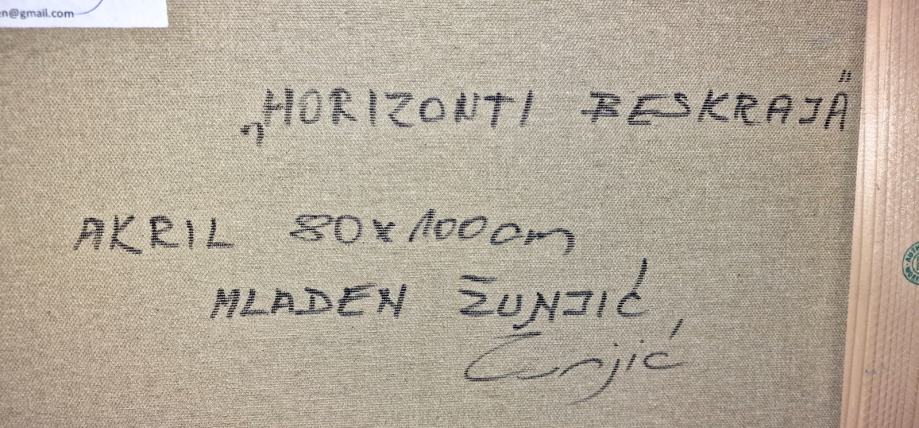 n@gmail.com
„HORIZONTI BESKRAJA"
AKRIL 80x100cm
MLADEN ŽUNJIĆ
Žunjić